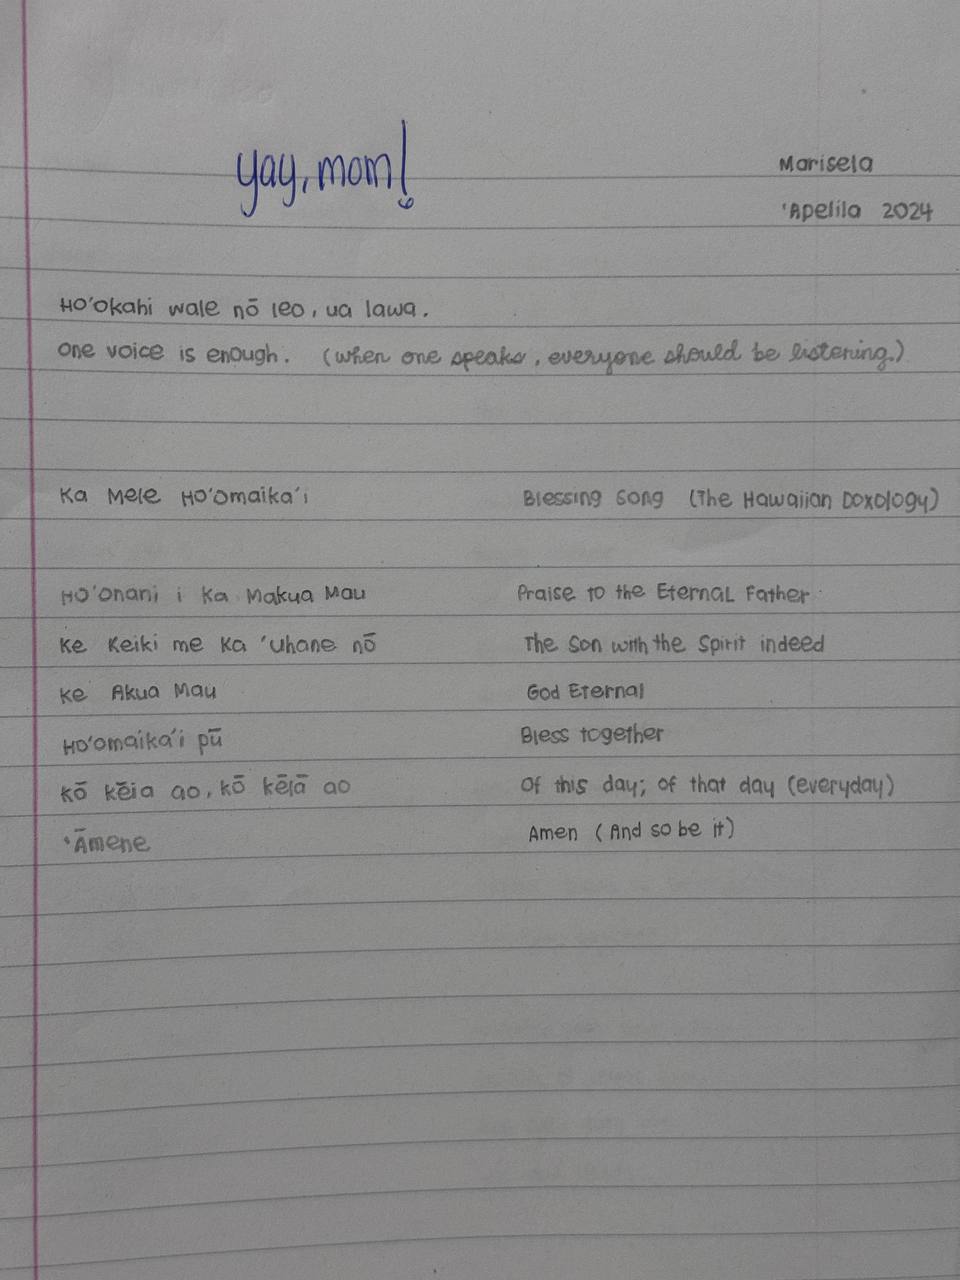 yay, mom!
Marisela
'Apelila 2024
Ho'okahi wale nō leo, ua lawa.
One voice is enough. (When one speaks, everyone should be listening.)
Ka Mele Ho'omaika'i
Blessing Song (The Hawaiian Doxology)
Ho'onani i ka Makua Mau
Praise to the Eternal Father
Ke Keiki me ka 'Uhane nō
The Son with the Spirit indeed
Ke Akua Mau
God Eternal
Ho'omaika'i pū
Bless together
Kō kēia ao, kō kēlā ao
Of this day; of that day (everyday)
'Āmene
Amen (And so be it)